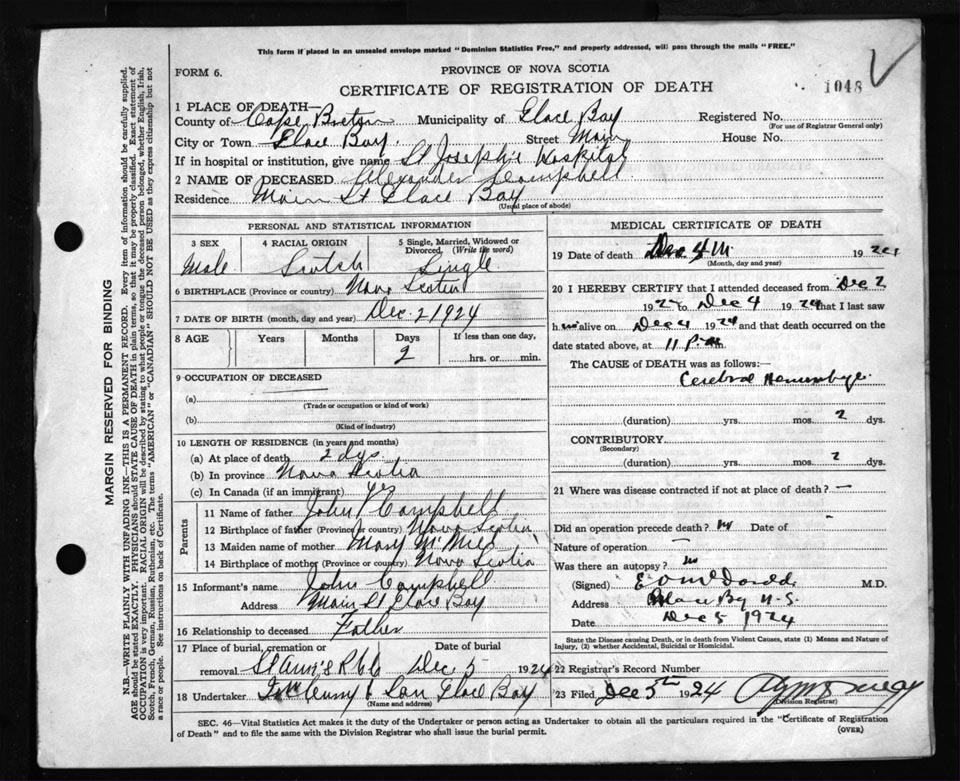 This form if placed in an unsealed envelope marked "Dominion Statistics Free," and properly addressed, will pass through the mails "FREE."
FORM 6.
PROVINCE OF NOVA SCOTIA
CERTIFICATE OF REGISTRATION OF DEATH
1048
1 PLACE OF DEATH—
County of Cape Breton Municipality of Glace Bay Registered No.
(For use of Registrar General only)
City or Town Glace Bay. Street Main House No.
If in hospital or institution, give name St Joseph's Hospital
2 NAME OF DECEASED Alexander Campbell
Residence Main St Glace Bay
(Usual place of abode)
PERSONAL AND STATISTICAL INFORMATION
3 SEX 4 RACIAL ORIGIN 5 Single, Married, Widowed or Divorced. (Write the word)
Male Scotch Single
6 BIRTHPLACE (Province or country) Nova Scotia
7 DATE OF BIRTH (month, day and year) Dec 2 1924
8 AGE Years Months Days If less than one day,
2 hrs. or min.
9 OCCUPATION OF DECEASED
(a)
(Trade or occupation or kind of work)
(b)
(Kind of industry)
10 LENGTH OF RESIDENCE (in years and months)
(a) At place of death 2 dys.
(b) In province Nova Scotia
(c) In Canada (if an immigrant) yes
Parents
11 Name of father John Campbell
12 Birthplace of father (Province or country) Nova Scotia
13 Maiden name of mother Mary
14 Birthplace of mother (Province or country) Nova Scotia
15 Informant's name John Campbell
Address Main St Glace Bay
16 Relationship to deceased Father
17 Place of burial, cremation or removal Date of burial
St Ann's Dec 5 1924
18 Undertaker & Son Glace Bay
(Name and address)
MEDICAL CERTIFICATE OF DEATH
19 Date of death Dec 4th 1924
(Month, day and year)
20 I HEREBY CERTIFY that I attended deceased from Dec 2
1924 to Dec 4 1924 that I last saw
h im alive on Dec 4 1924 and that death occurred on
date stated above, at 11 p.m
The CAUSE of DEATH was as follows:
Cerebral Hemorrhage.
(duration) yrs. mos. 2 dys.
CONTRIBUTORY
(Secondary)
(duration) yrs. mos. 2 dys.
21 Where was disease contracted if not at place of death? —
Did an operation precede death? no Date of —
Nature of operation —
Was there an autopsy? no
(Signed) M.D.
Address Glace Bay N.S.
Date Dec 5 1924
State the Disease causing Death, or in death from Violent Causes, state (1) Means and Nature of Injury, (2) whether Accidental, Suicidal or Homicidal.
22 Registrar's Record Number
23 Filed Dec 5th 1924
(Division Registrar)
SEC. 46—Vital Statistics Act makes it the duty of the Undertaker or person acting as Undertaker to obtain all the particulars required in the "Certificate of Registration
of Death" and to file the same with the Division Registrar who shall issue the burial permit.
(OVER)
MARGIN RESERVED FOR BINDING
N.B.—WRITE PLAINLY WITH UNFADING INK—THIS IS A PERMANENT RECORD. Every item of information should be carefully supplied.
AGE should be stated EXACTLY. PHYSICIANS should STATE CAUSE OF DEATH in plain terms, so that it may be properly classified. Exact statement of
OCCUPATION is very important. RACIAL ORIGIN will be described by stating to what people or tongue the deceased person belonged, whether English, Irish,
Scotch, French, German, Russian, Ruthenian, etc. The terms "AMERICAN" or "CANADIAN" SHOULD NOT BE USED as they express citizenship but not
a race or people. See instructions on back of Certificate.